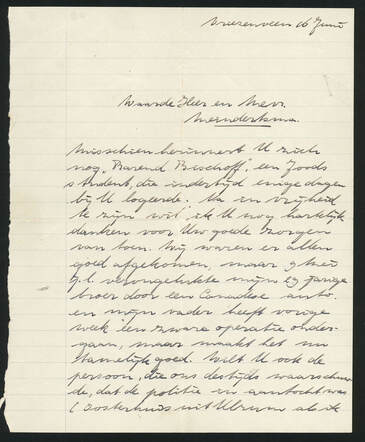 Vriezenveen 16 Juni
Waarde Heer en Mevr.
Misschien herinnert U zich
nog "Barend Bischoff", een Joods
student, die indertijd enige dagen
bij U logeerde. Nu in vrijheid
te zijn wil ik U nog hartelijk
danken voor Uw goede zorgen
van toen. Wij waren er allen
goed afgekomen, maar 9 Mei
j.l. verongelukte mijn 29 jarige
broer door een Canadese auto.
en mijn vader heeft vorige
week een zware operatie onder-
gaan, maar maakt het nu
tamelijk goed. Wilt U ook de
persoon, die ons destijds waarschuw-
de, dat de politie in aantocht was
( Oosterhuis uit Ulrum als ik